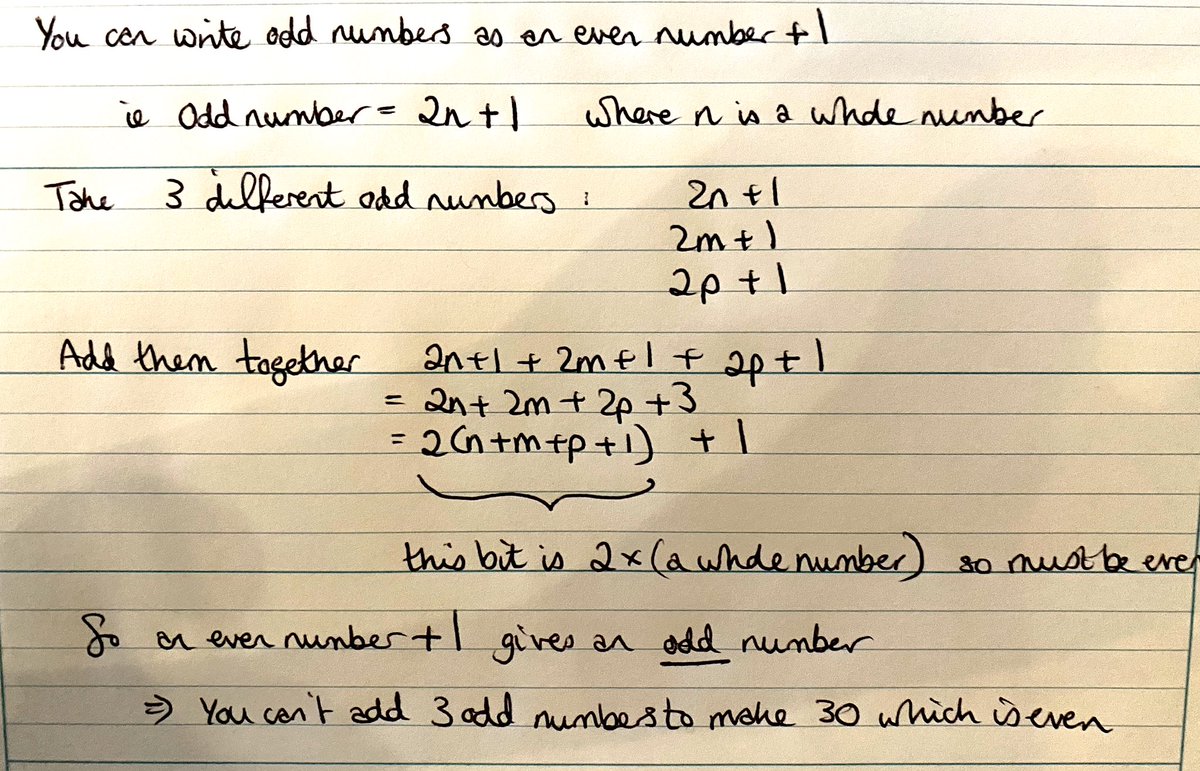 You can write odd numbers as an even number +1
ie Odd number = 2n+1 where n is a whole number
Take 3 different odd numbers : 2n +1
2m + 1
2p + 1
Add them together 2n+1 + 2m+1 + 2p+1
= 2n+ 2m + 2p +3
= 2(n+m+p+1) + 1
this bit is 2×(a whole number) so must be eve
So an even number +1 gives an odd number
⇒ You can't add 3 odd numbers to make 30 which is even